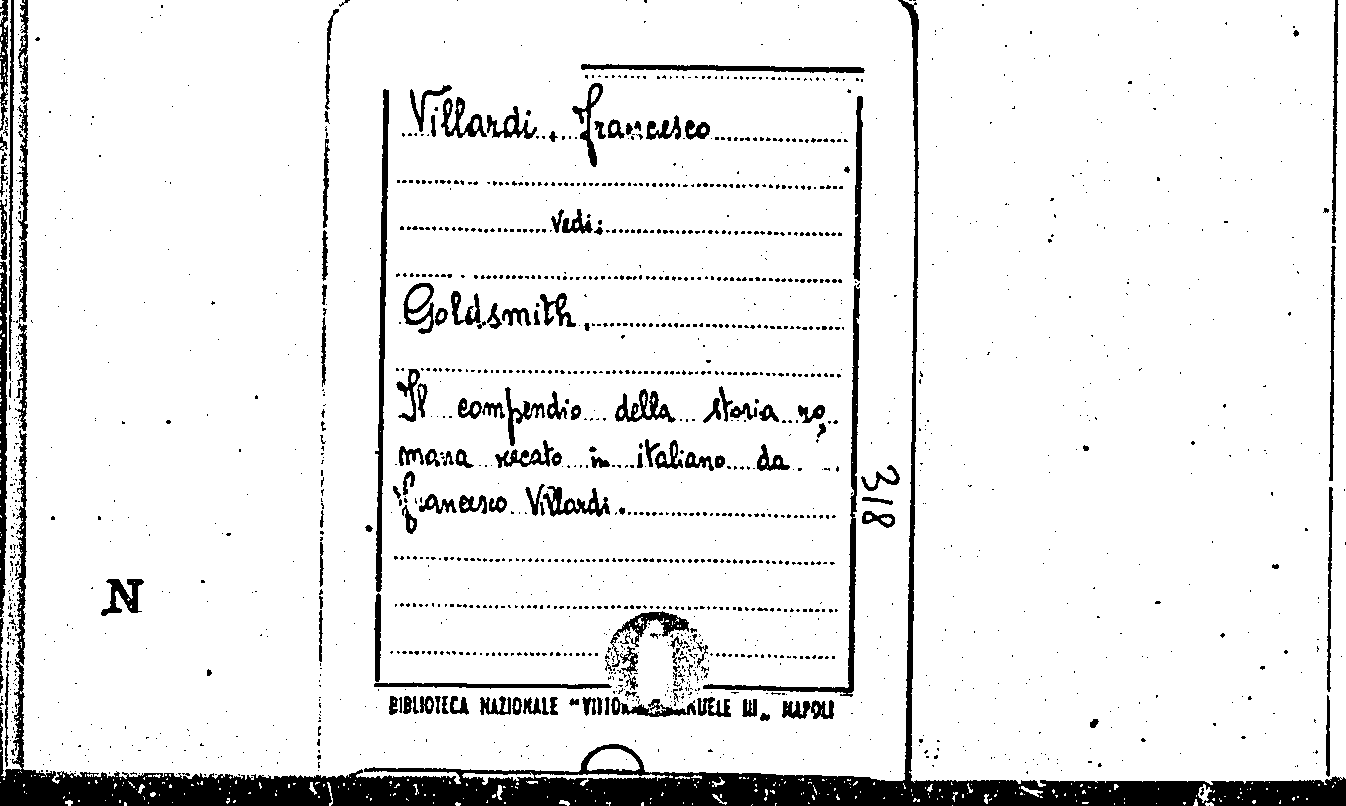 Villardi, Francesco
Vedi:
Goldsmith.
Il compendio della storia ro,
mana recato in italiano da
Francesco Villardi.
318
N
BIBLIOTECA NAZIONALE "VITTORIO EMANUELE III„ NAPOLI